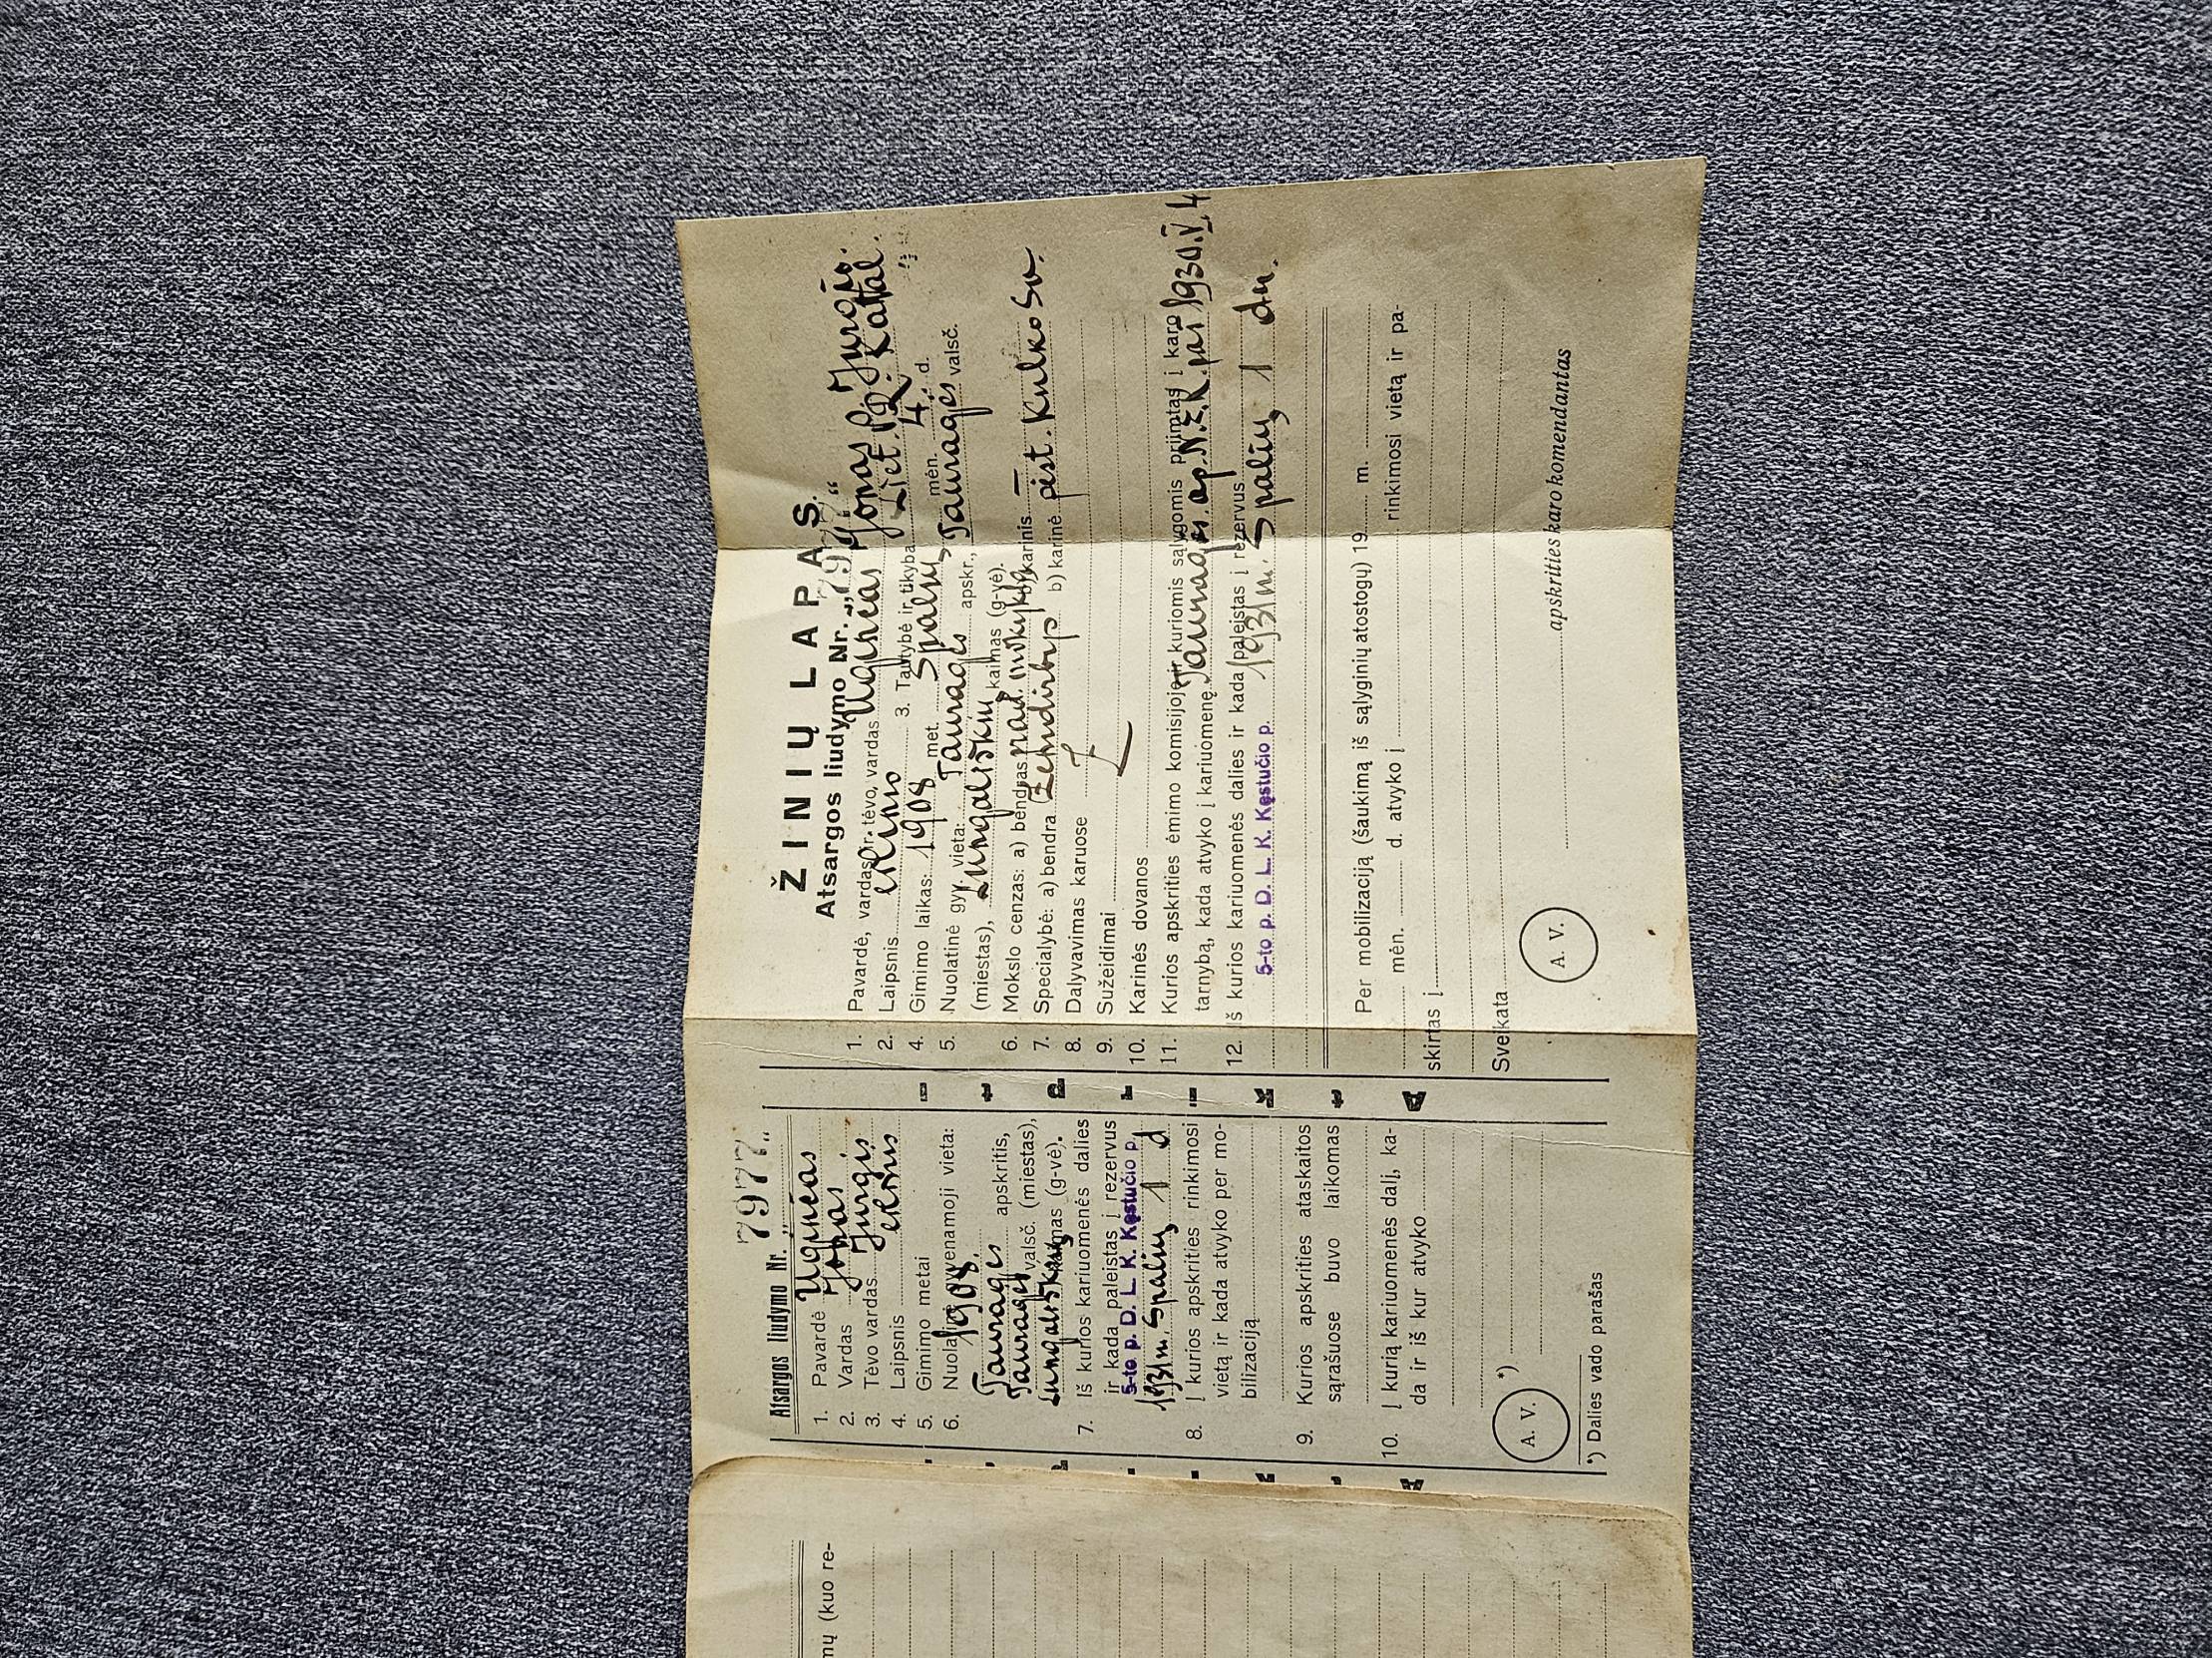 mų (kuo re-
Atsargos liudymo Nr. „7977“
1. Pavardė Ugnėas
2. Vardas Jonas
3. Tėvo vardas Jurgis
4. Laipsnis
5. Gimimo metai 1908.
6. Nuolatinė gyvenamoji vieta:
Tauragės apskritis,
Tauragės valsč. (miestas),
kaimas (g-vė).
7. Iš kurios kariuomenės dalies
ir kada paleistas į rezervus
5-to p. D. L. K. Kęstučio p.
1931 m. Spalių 1 d
8. Į kurios apskrities rinkimosi
vietą ir kada atvyko per mo-
bilizaciją
9. Kurios apskrities ataskaitos
sąrašuose buvo laikomas
10. Į kurią kariuomenės dalį, ka-
da ir iš kur atvyko
A. V. *)
*) Dalies vado parašas
ŽINIŲ LAPAS.
Atsargos liudymo Nr. „7977“
1. Pavardė, vardas ir tėvo, vardas Ugnėas Jonas Jurgio.
2. Laipsnis 3. Tautybė ir tikyba Liet. R. Katal.
4. Gimimo laikas: 1908 met. Spalių mėn. 4 d.
5. Nuolatinė gyv. vieta: Tauragės apskr., Tauragės valsč.
(miestas), kaimas (g-vė).
6. Mokslo cenzas: a) bendras prad. mokyklą b) karinis —
7. Specialybė: a) bendra Žemdirbys b) karinė pėst. Kulkosv.
8. Dalyvavimas karuose
9. Sužeidimai
10. Karinės dovanos
11. Kurios apskrities ėmimo komisijoje ir kuriomis sąlygomis priimtas į karo
tarnybą, kada atvyko į kariuomenę. Tauragės ap. N.Ė.K. par 1930.V.4
12. Iš kurios kariuomenės dalies ir kada paleistas į rezervus
5-to p. D. L. K. Kęstučio p. 1931 m. Spalių 1 d.
Per mobilizaciją (šaukimą iš sąlyginių atostogų) 19 m.
mėn. d. atvyko į rinkimosi vietą ir pa-
skirtas į
Sveikata
apskrities karo komendantas
A. V.